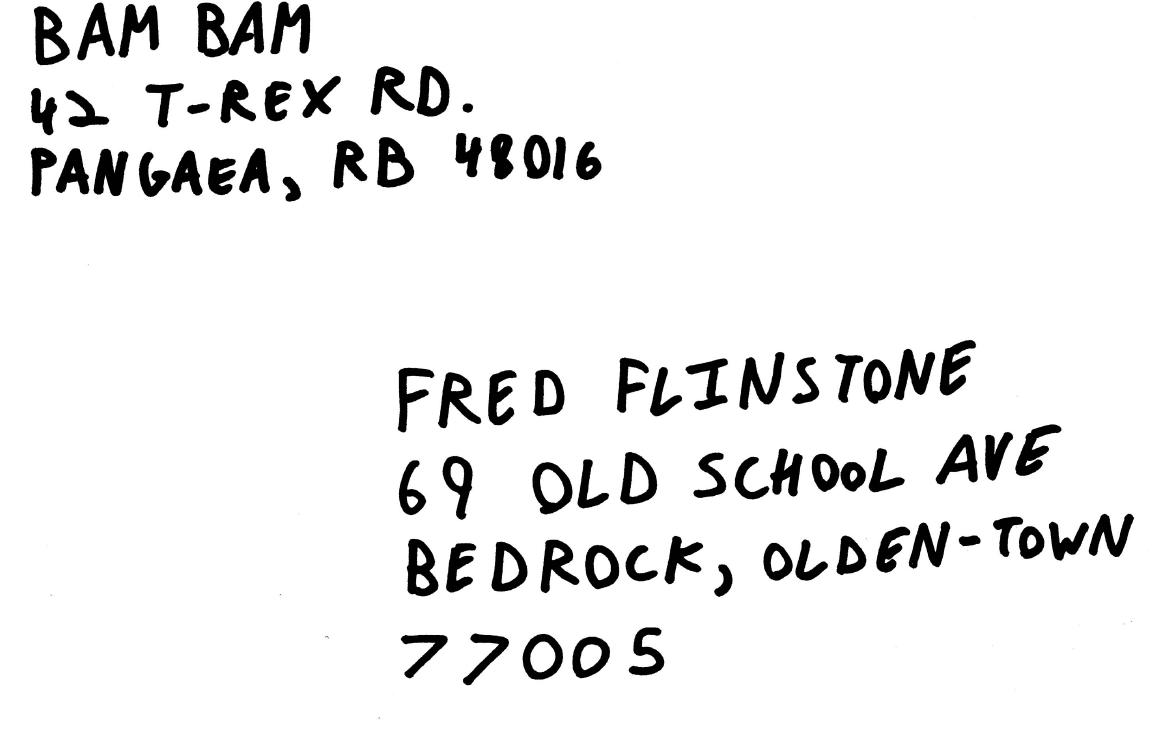 BAM BAM
42 T-REX RD.
PANGAEA, RB 48016
FRED FLINSTONE
69 OLD SCHOOL AVE
BEDROCK, OLDEN-TOWN
77005